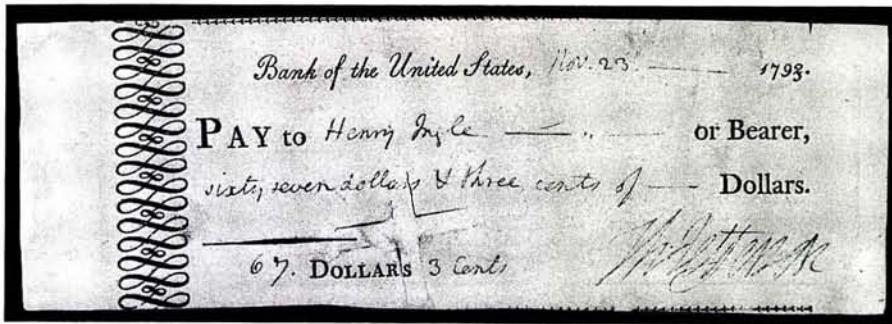 Bank of the United States, Nov. 23. —— 1793.
PAY to Henry Ingle — " — or Bearer,
sixty seven dollars & three cents of — Dollars.
67. DOLLARS 3 Cents
Th Jefferson